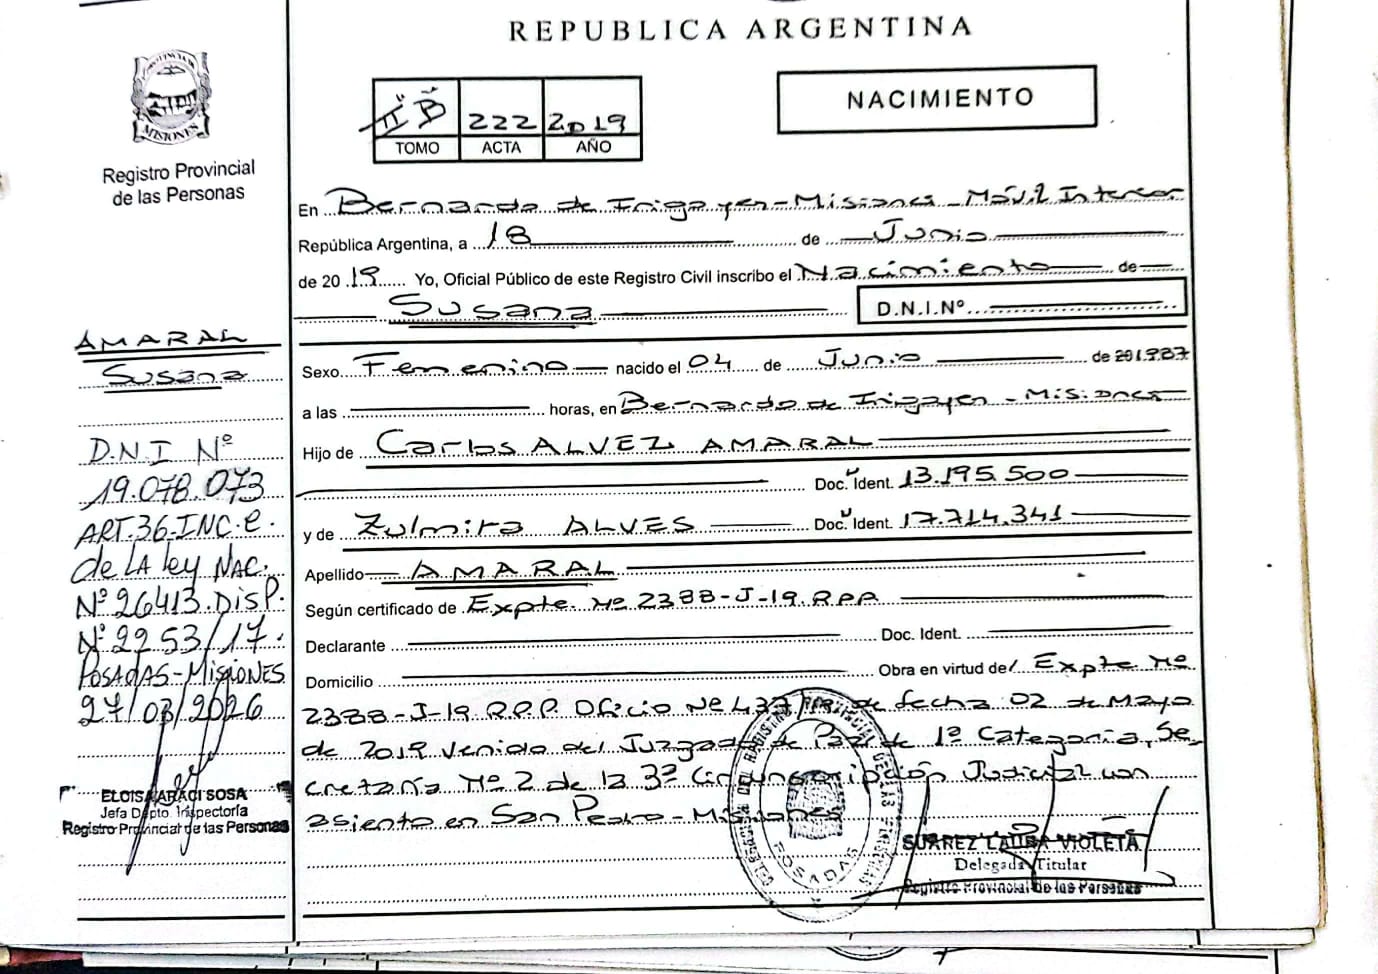 REPUBLICA ARGENTINA
PROVINCIA DE
MISIONES
Registro Provincial
de las Personas
II B 222 2019
TOMO ACTA AÑO
NACIMIENTO
En Bernardo de Irigoyen - Misiones - Móvil Interior
República Argentina, a 18 de Junio
de 2019 Yo, Oficial Público de este Registro Civil inscribo el Nacimiento de
Susana D.N.I.Nº
Sexo Femenino nacido el 04 de Junio de 201987
a las horas, en Bernardo de Irigoyen - Misiones
Hijo de Carlos ALVEZ AMARAL
Doc. Ident. 13.195.500
y de Zulmira ALVES Doc. Ident. 17.714.341
Apellido AMARAL
Según certificado de Expte. Nº 2388-J-19. RPP
Declarante Doc. Ident.
Domicilio Obra en virtud de Expte Nº
2388-J-19 R.P.P. Oficio Nº 437/19 de fecha 02 de Mayo
de 2019 venido del Juzgado de Paz de 1ª Categoria, Se
cretaría Nº 2 de la 3ª Circunscripción Judicial con
asiento en San Pedro - Misiones
AMARAL
Susana
D.N.I Nº
19.078.073
ART.36-INC.e.
de LA ley NAC.
Nº 26413.DISP.
Nº 2253/17.
POSADAS-MISIONES
27/03/2026
ELOISA ARACI SOSA
Jefa Dpto. Inspectoría
Registro Provincial de las Personas
POSADAS
SUAREZ LAURA VIOLETA
Delegada Titular
Registro Provincial de las Personas